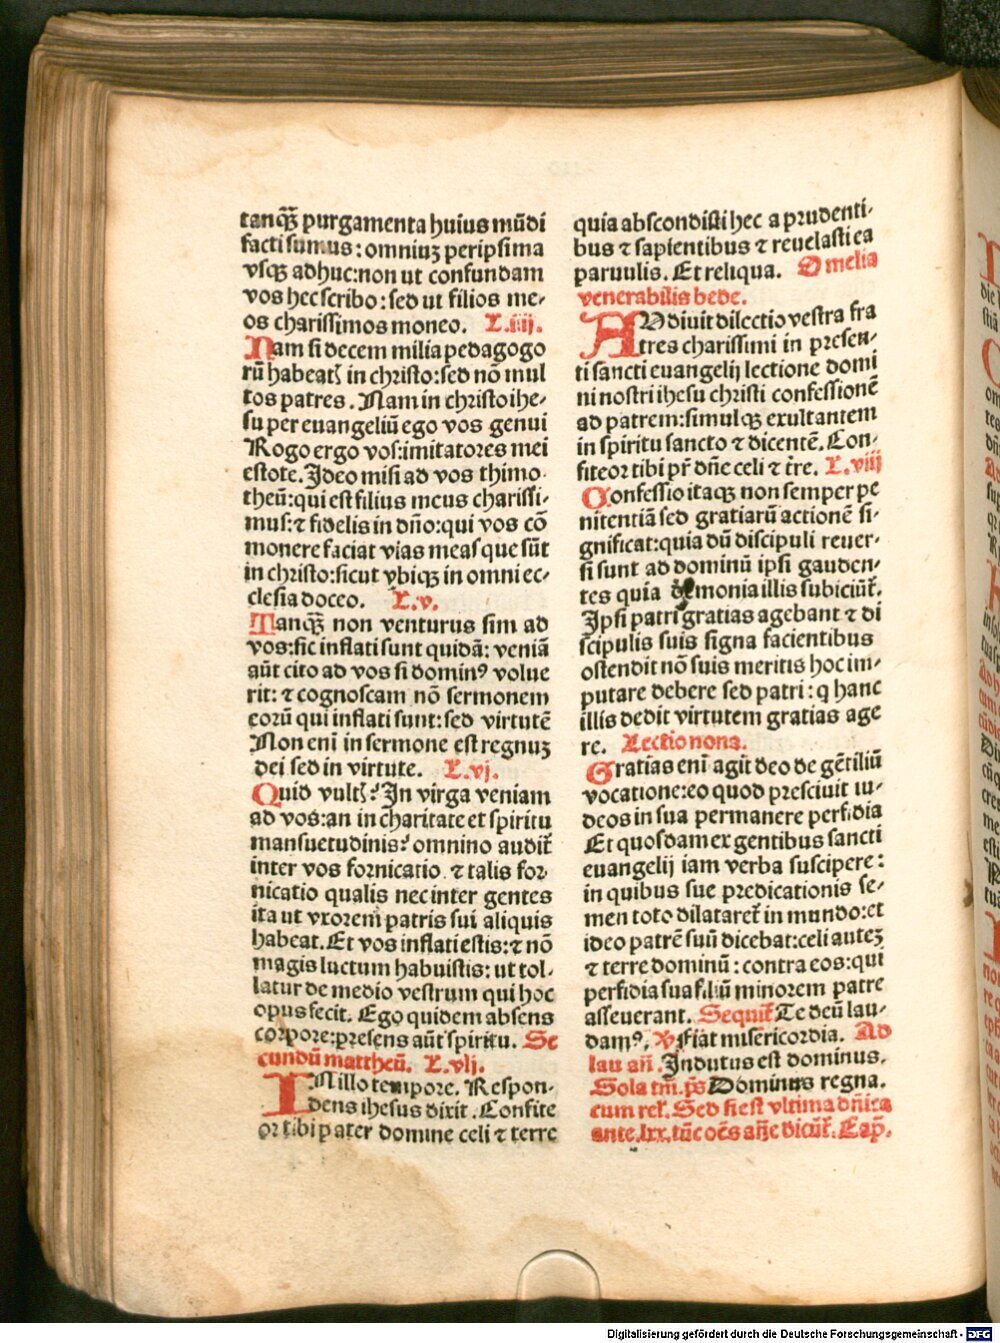 tanqꝫ purgamenta huius mūdi
facti sumus: omniuꝫ peripsima
vsqꝫ adhuc: non ut confundam
vos hec scribo: sed ut filios me-
os charissimos moneo. L.iiij.
Nam si decem milia pedagogo
rū habeatꝭ in christo: sed nō mul
tos patres. Nam in christo ihe-
su per euangeliū ego vos genui
Rogo ergo vos: imitatores mei
estote. Ideo misi ad vos thimo-
theū: qui est filius meus charissi-
mus: ⁊ fidelis in dño: qui vos cō
monere faciat vias meas que sūt
in christo: sicut vbiqꝫ in omni ec-
clesia doceo. L.v.
Tanqꝫ non venturus sim ad
vos: sic inflati sunt quidā: veniā
aūt cito ad vos si dominꝰ volue
rit: ⁊ cognoscam nō sermonem
eorū qui inflati sunt: sed virtutē
Non enī in sermone est regnuꝫ
dei sed in virtute. L.vj.
Quid vultꝭ? In virga veniam
ad vos: an in charitate et spiritu
mansuetudinis? omnino auditr̄
inter vos fornicatio. ⁊ talis for-
nicatio qualis nec inter gentes
ita ut vxorem patris sui aliquis
habeat. Et vos inflati estis: ⁊ nō
magis luctum habuistis: ut tol-
latur de medio vestrum qui hoc
opus fecit. Ego quidem absens
corpore: presens aūt spiritu. Se
cundū mattheū. L.vij.
IN illo tempore. Respon-
dens ihesus dixit. Confite
or tibi pater domine celi ⁊ terre
quia abscondisti hec a prudenti-
bus ⁊ sapientibus ⁊ reuelasti ea
paruulis. Et reliqua. Omelia
venerabilis bede.
AVdiuit dilectio vestra fra
tres charissimi in presen-
ti sancti euangelij lectione domi
ni nostri ihesu christi confessionē
ad patrem: simulqꝫ exultantem
in spiritu sancto ⁊ dicentē. Con-
fiteor tibi pr̄ dñe celi ⁊ tr̄e. L.viij
Confessio itaqꝫ non semper pe
nitentiā sed gratiarū actionē si-
gnificat: quia dū discipuli reuer-
si sunt ad dominū ipsi gauden-
tes quia demonia illis subiciūtr̄.
Ipsi patri gratias agebant ⁊ di
scipulis suis signa facientibus
ostendit nō suis meritis hoc im-
putare debere sed patri: q hanc
illis dedit virtutem gratias age
re. Lectio nona.
Gratias enī agit deo de gētiliū
vocatione: eo quod presciuit iu-
deos in sua permanere perfidia
Et quosdam ex gentibus sancti
euangelij iam verba suscipere:
in quibus sue predicationis se-
men toto dilataretr̄ in mundo: et
ideo patrē suū dicebat: celi auteꝫ
⁊ terre dominū: contra eos: qui
perfidia sua filiū minorem patre
asseuerant. Sequitr̄ Te deū lau-
damꝰ. ℣ Fiat misericordia. Ad
lau añ. Indutus est dominus.
Sola tm̄. p̄s Dominus regna.
cum rel. Sed si est vltima dñica
ante .lxx. tūc oēs añe dicūtr̄. Cap.
Digitalisierung gefördert durch die Deutsche Forschungsgemeinschaft - DFG